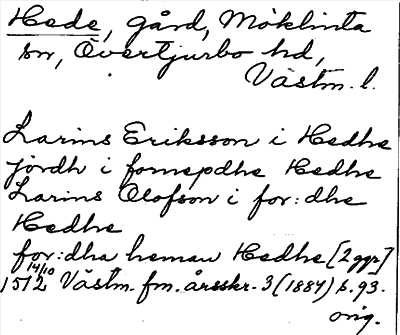 Hede, gård, Möklinta
sn, Övertjurbo hd,
Västm. l.
Larins Eriksson i Hedhe
jördh i fornepdhe Hedhe
Larins Olofson i for:dhe
Hedhe
for:dha heman Hedhe [2 ggr]
1512 14/10 Västm. fm. årsskr. 3 (1884) s. 93.
orig.